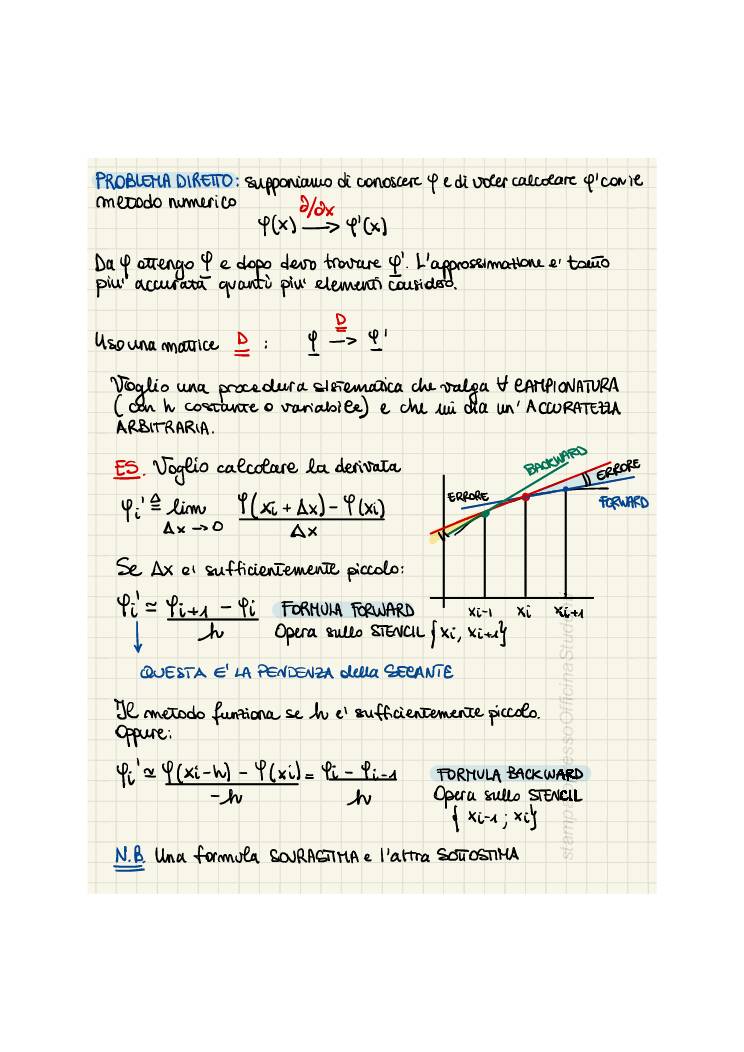 PROBLEMA DIRETTO: supponiamo di conoscere φ e di voler calcolare φ' con il
metodo numerico
∂/∂x
φ(x) ⟶ φ'(x)
Da φ ottengo φ e dopo devo trovare φ'. L'approssimazione e' tanto
piu' accurata quanti piu' elementi considero.
Uso una matrice D : φ ⟶ φ'
D
Voglio una procedura sistematica che valga ∀ CAMPIONATURA
(con h costante o variabile) e che mi dia un'ACCURATEZZA
ARBITRARIA.
ES. Voglio calcolare la derivata
φi' ≜ lim φ(xi + Δx) - φ(xi)
Δx → 0 Δx
BACKWARD
ERRORE
ERRORE
FORWARD
xi-1 xi xi+1
Se Δx e' sufficientemente piccolo:
φi' ≃ φi+1 - φi FORMULA FORWARD
h Opera sullo STENCIL {xi, xi+1}
QUESTA E' LA PENDENZA della SECANTE
Il metodo funziona se h e' sufficientemente piccolo.
Oppure:
φi' ≃ φ(xi-h) - φ(xi) = φi - φi-1 FORMULA BACKWARD
-h h Opera sullo STENCIL
{xi-1 ; xi}
N.B. Una formula SOVRASTIMA e l'altra SOTTOSTIMA